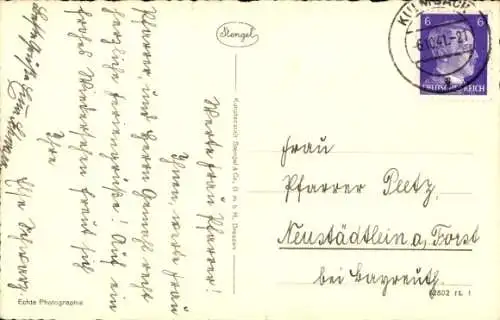 Werte Frau Pfarrer!
Ihnen, werte Frau
Pfarrer, und Herrn Gemahl recht
herzliche Feriengrüße! Auf ein
frohes Wiedersehen freut sich
Ihre
Else
Echte Photographie
Stengel
Kunstanstalt Stengel & Co., G. m. b. H., Dresden
KULMBACH
6.10.41.-21
6 6
DEUTSCHES REICH
Frau
Pfarrer Peetz,
Neustädtlein a. Forst
bei Bayreuth.